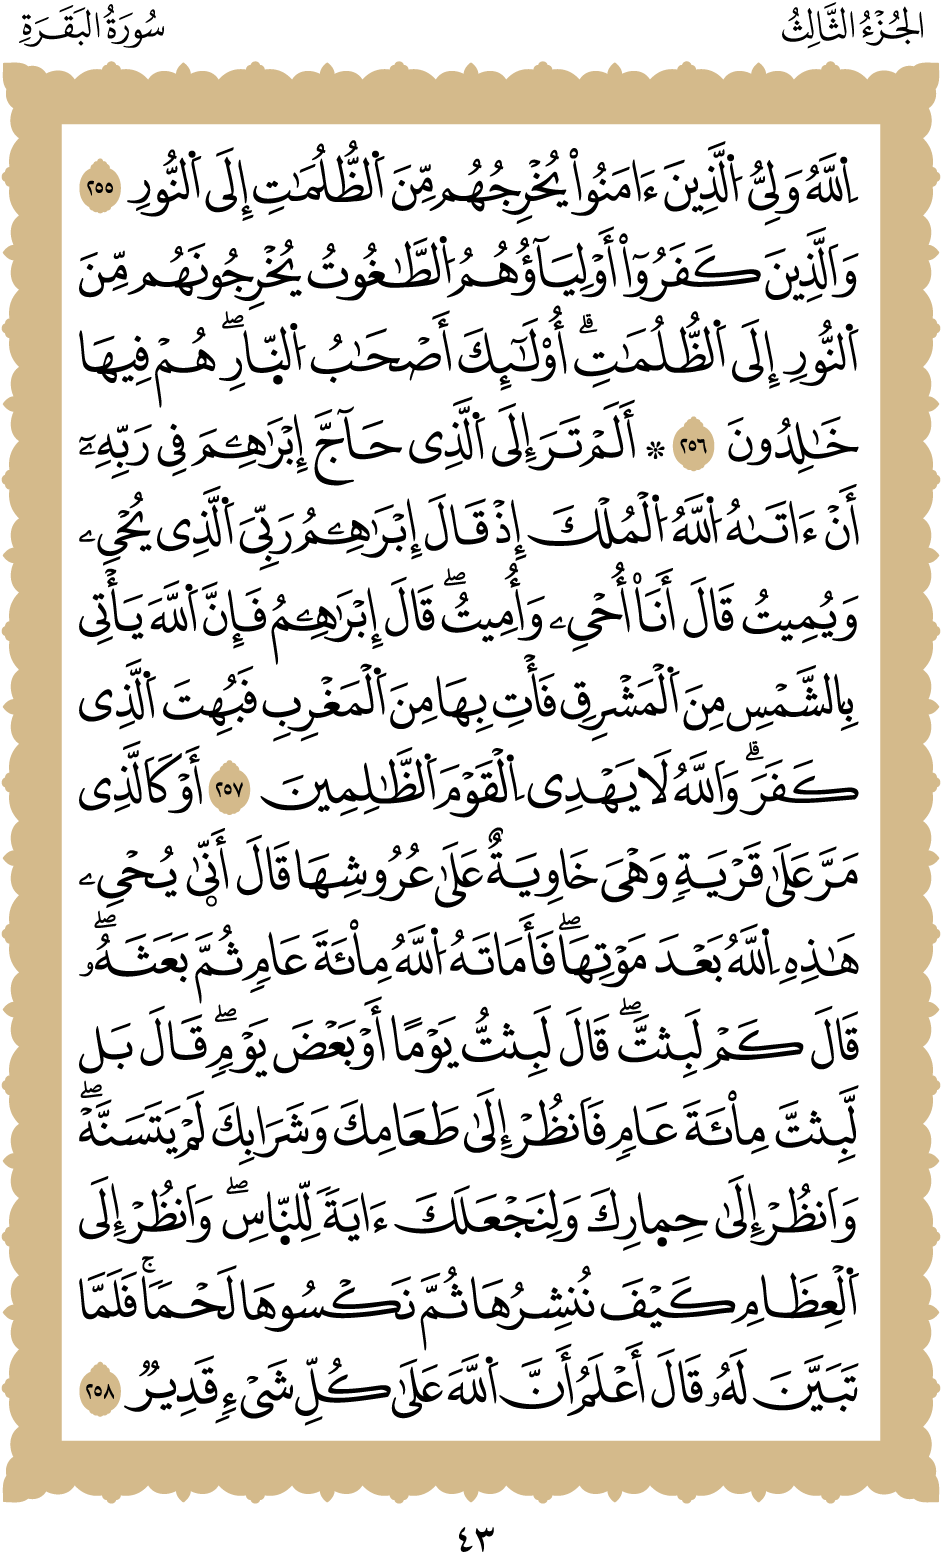 الجُزْءُ الثَّالِثُ
سُورَةُ البَقَرَةِ
اِ۬للَّهُ وَلِيُّ اُ۬لَّذِينَ ءَامَنُواْ يُخْرِجُهُم مِّنَ اَ۬لظُّلُمَٰتِ إِلَى اَ۬لنُّورِ ٢٥٥
وَالَّذِينَ كَفَرُوٓاْ أَوْلِيَآؤُهُمُ اُ۬لطَّٰغُوتُ يُخْرِجُونَهُم مِّنَ
اَ۬لنُّورِ إِلَى اَ۬لظُّلُمَٰتِۗ أُوْلَٰٓئِكَ أَصْحَٰبُ اُ۬لنّ۪ارِۖ هُمْ فِيهَا
خَٰلِدُونَ ٢٥٦ ۞ أَلَمْ تَرَ إِلَى اَ۬لَّذِى حَآجَّ إِبْرَٰهِـۧمَ فِى رَبِّهِۦٓ
أَنْ ءَاتَىٰهُ اُ۬للَّهُ اُ۬لْمُلْكَ إِذْ قَالَ إِبْرَٰهِـۧمُ رَبِّىَ اَ۬لَّذِى يُحْىِۦ
وَيُمِيتُ قَالَ أَنَا۠ أُحْىِۦ وَأُمِيتُۖ قَالَ إِبْرَٰهِـۧمُ فَإِنَّ اَ۬للَّهَ يَأْتِى
بِالشَّمْسِ مِنَ اَ۬لْمَشْرِقِ فَأْتِ بِهَا مِنَ اَ۬لْمَغْرِبِ فَبُهِتَ اَ۬لَّذِى
كَفَرَۗ وَاللَّهُ لَا يَهْدِى اِ۬لْقَوْمَ اَ۬لظَّٰلِمِينَ ٢٥٧ أَوْ كَالَّذِى
مَرَّ عَلَىٰ قَرْيَةٍ وَهْىَ خَاوِيَةٌ عَلَىٰ عُرُوشِهَا قَالَ أَنّ۪ىٰ يُحْىِۦ
هَٰذِهِ اِ۬للَّهُ بَعْدَ مَوْتِهَاۖ فَأَمَاتَهُ اُ۬للَّهُ مِاْئَةَ عَامٍ ثُمَّ بَعَثَهُۥۖ
قَالَ كَمْ لَبِثتَّۖ قَالَ لَبِثتُّ يَوْمًا أَوْ بَعْضَ يَوْمٍۖ قَالَ بَل
لَّبِثتَّ مِاْئَةَ عَامٍ فَانظُرْ إِلَىٰ طَعَامِكَ وَشَرَابِكَ لَمْ يَتَسَنَّهْۖ
وَانظُرْ إِلَىٰ حِم۪ارِكَ وَلِنَجْعَلَكَ ءَايَةً لِّلنّ۪اسِۖ وَانظُرْ إِلَى
اَ۬لْعِظَامِ كَيْفَ نُنشِرُهَا ثُمَّ نَكْسُوهَا لَحْمًاۚ فَلَمَّا
تَبَيَّنَ لَهُۥ قَالَ أَعْلَمُ أَنَّ اَ۬للَّهَ عَلَىٰ كُلِّ شَىْءٍ قَدِيرٌ ٢٥٨
٤٣